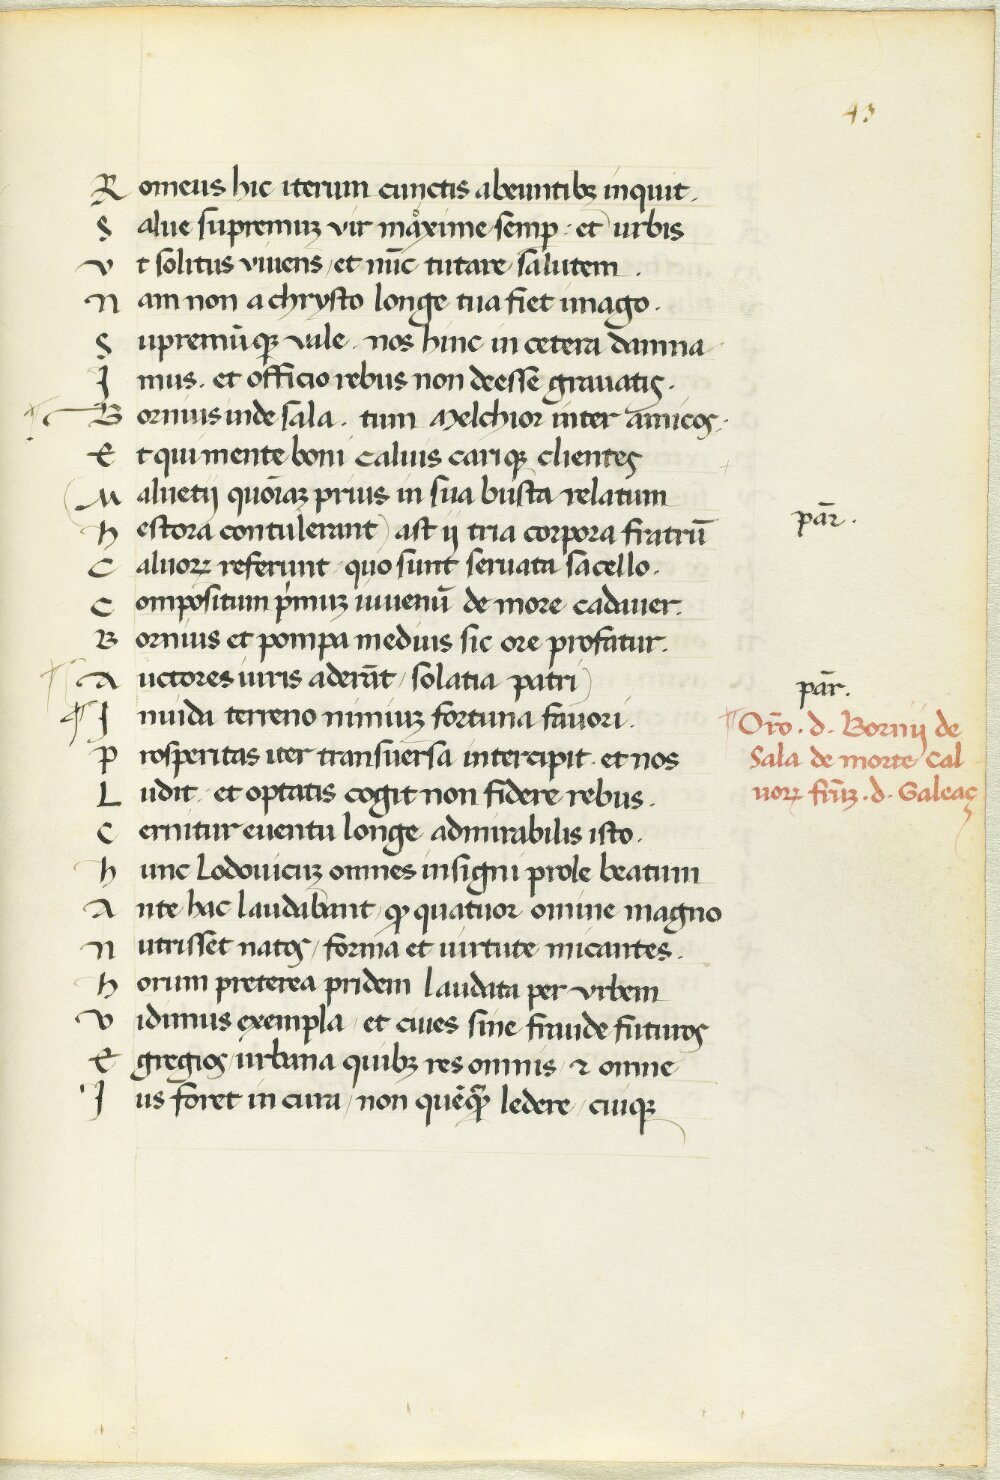 43
Romeus hic iterum cunctis abeuntibꝫ inquit.
Salue supremuꝫ vir maxime semp. et urbis
Vt solitus viuens, et nūc tutare salutem.
Nam non a chrysto longe tua fiet imago.
Supremūqꝫ vale. nos hinc in cetera damna
Imus. et officio rebus non deesse grauatis.
Bornius inde sala. tum Melchior inter amicos.
Et qui mente boni Caluis cariqꝫ clientes
(Maluetij quoniaꝫ prius in sua busta relatum
Hestora contulerant) ast ij tria corpora fratrū
pār.
Caluoꝝ referunt quo sunt seruata sacello.
Compositum pimuꝫ iuuenū de more cadauer.
Bornius et pompa medius sic ore profatur.
(Auctores iuris aderāt, solatia patri)
pār.
Inuida terreno nimiuꝫ fortuna fauori.
Orō. d. Bornij de
Sala de morte Cal
uoꝝ frūꝫ. d. Galeaç
Prosperitas iter transuersa intercipit. et nos
Ludit. et optatis cogit non fidere rebus.
Cernitur euentu longe admirabilis isto.
Hunc Lodouicuꝫ omnes insigni prole beatum
Ante hac laudabant, qꝫ quatuor omine magno
Nutrisset natos, forma et uirtute micantes.
Horum preterea pridem laudata per vrbem
Vidimus exempla, et ciues sine fraude futuros
Egregios, urbana quibꝫ res omnis, ⁊ omne
Ius foret in cura, non quēqꝫ ledere, cuiqꝫ